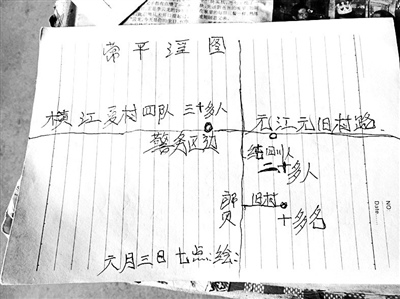 常平淫图
横江夏村四队 三十多人
元江元旧村路
警务区边
纯四川人
二十多人
旧村
十多名
元月三日七点绘:
NO
Date